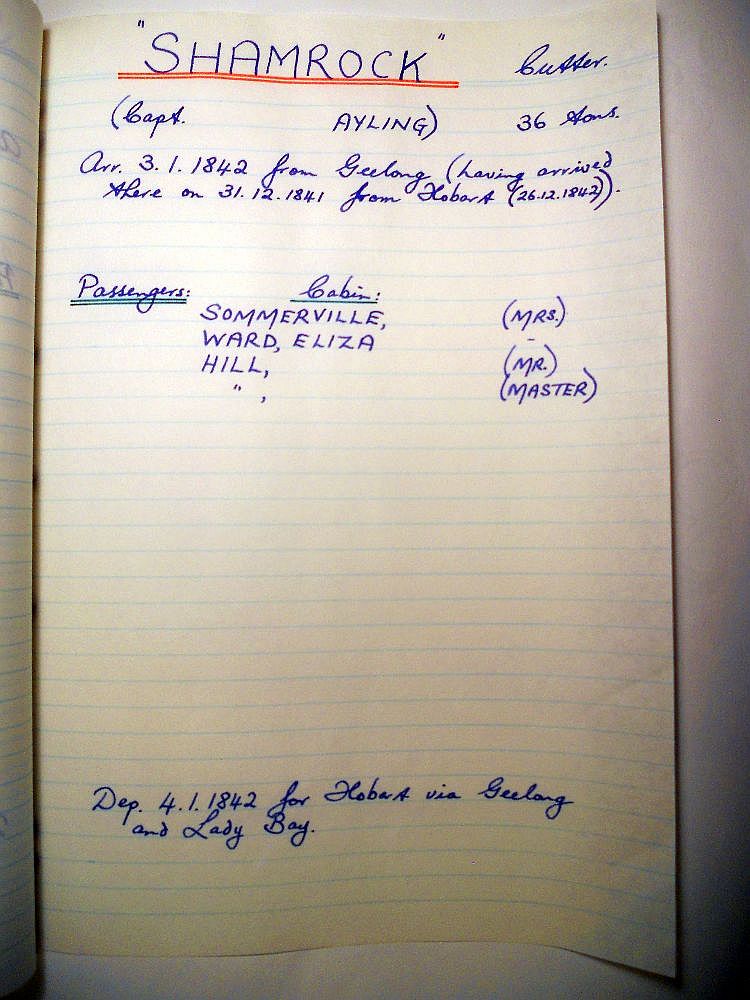 "SHAMROCK" Cutter.
(Capt. AYLING) 36 tons.
Arr. 3.1.1842 from Geelong (having arrived
there on 31.12.1841 from Hobart (26.12.1842)).
Passengers: Cabin:
SOMMERVILLE, (MRS.)
WARD, ELIZA -
HILL, (MR.)
" , (MASTER)
Dep. 4.1.1842 for Hobart via Geelong
and Lady Bay.